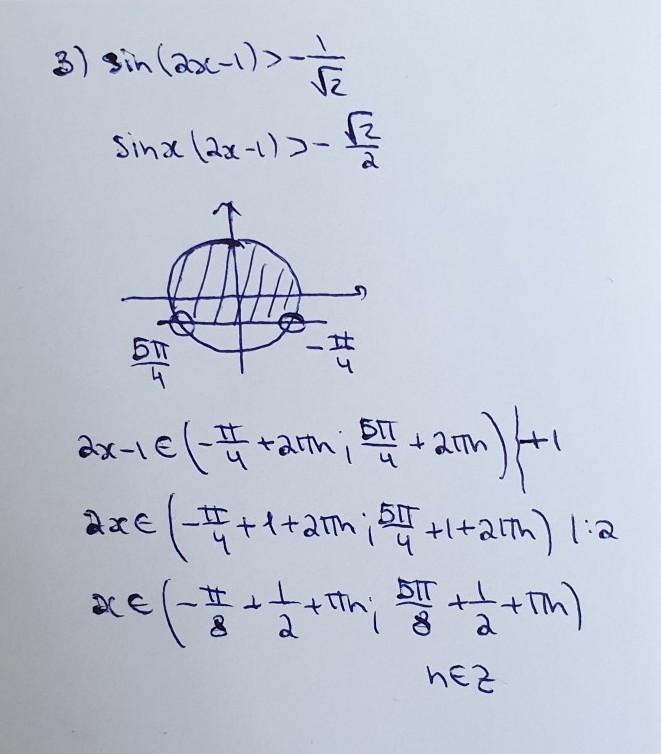 3) sin(2x-1)>-1/√2
sinx(2x-1)>-√2/2
5π/4 -π/4
2x-1∈(-π/4+2πn; 5π/4+2πn)|+1
2x∈(-π/4+1+2πn; 5π/4+1+2πn) |:2
x∈(-π/8+1/2+πn; 5π/8+1/2+πn)
n∈Z